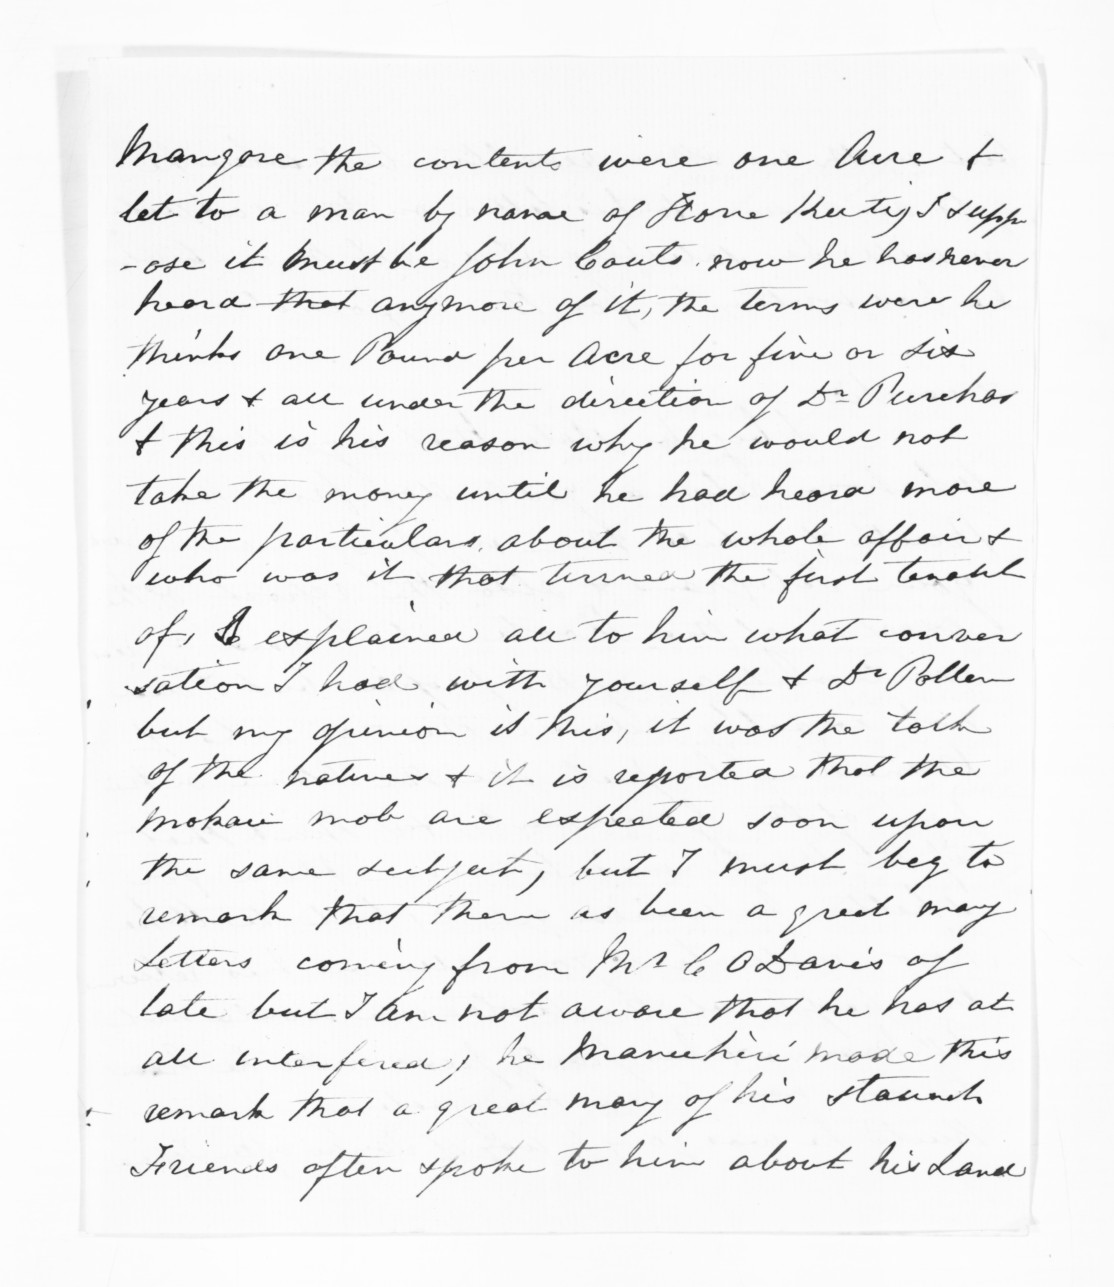 Mangare the contents were one Acre &
let to a man by name of Hone Keetij I supp
-ose it must be John Couts. now he has never
heard that anymore of it, the terms were he
thinks one Pound per Acre for five or six
years & all under the direction of Dr Purchas
& this is his reason why he would not
take the money until he had heard more
of the particulars. about the whole affair &
who was it that turned the first tenant
of, I explained all to him what conver
sation I had with yourself & Dr Pollen
but my opinion is this, it was the talk
of the natives & it is reported that the
Mokau mob are expected soon upon
the same subject, but I must beg to
remark that there as been a great many
Letters coming from Mr C O Davis of
late but I am not aware that he has at
all interfered, he Manuhiri made this
remark that a great many of his staunch
Friends often spoke to him about his Land